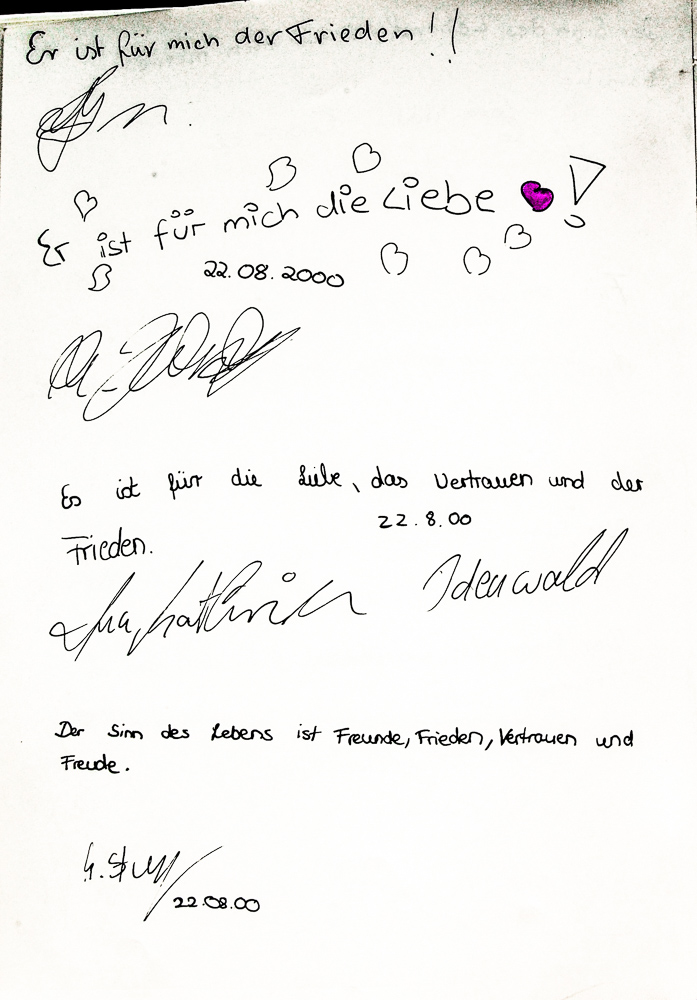 Er ist für mich der Frieden!!
Er ist für mich die Liebe !
22.08.2000
Es ist für die Liebe, das Vertrauen und der
22.8.00
Frieden.
Idenwald
Der Sinn des Lebens ist Freunde, Frieden, Vertrauen und
Freude.
22.08.00